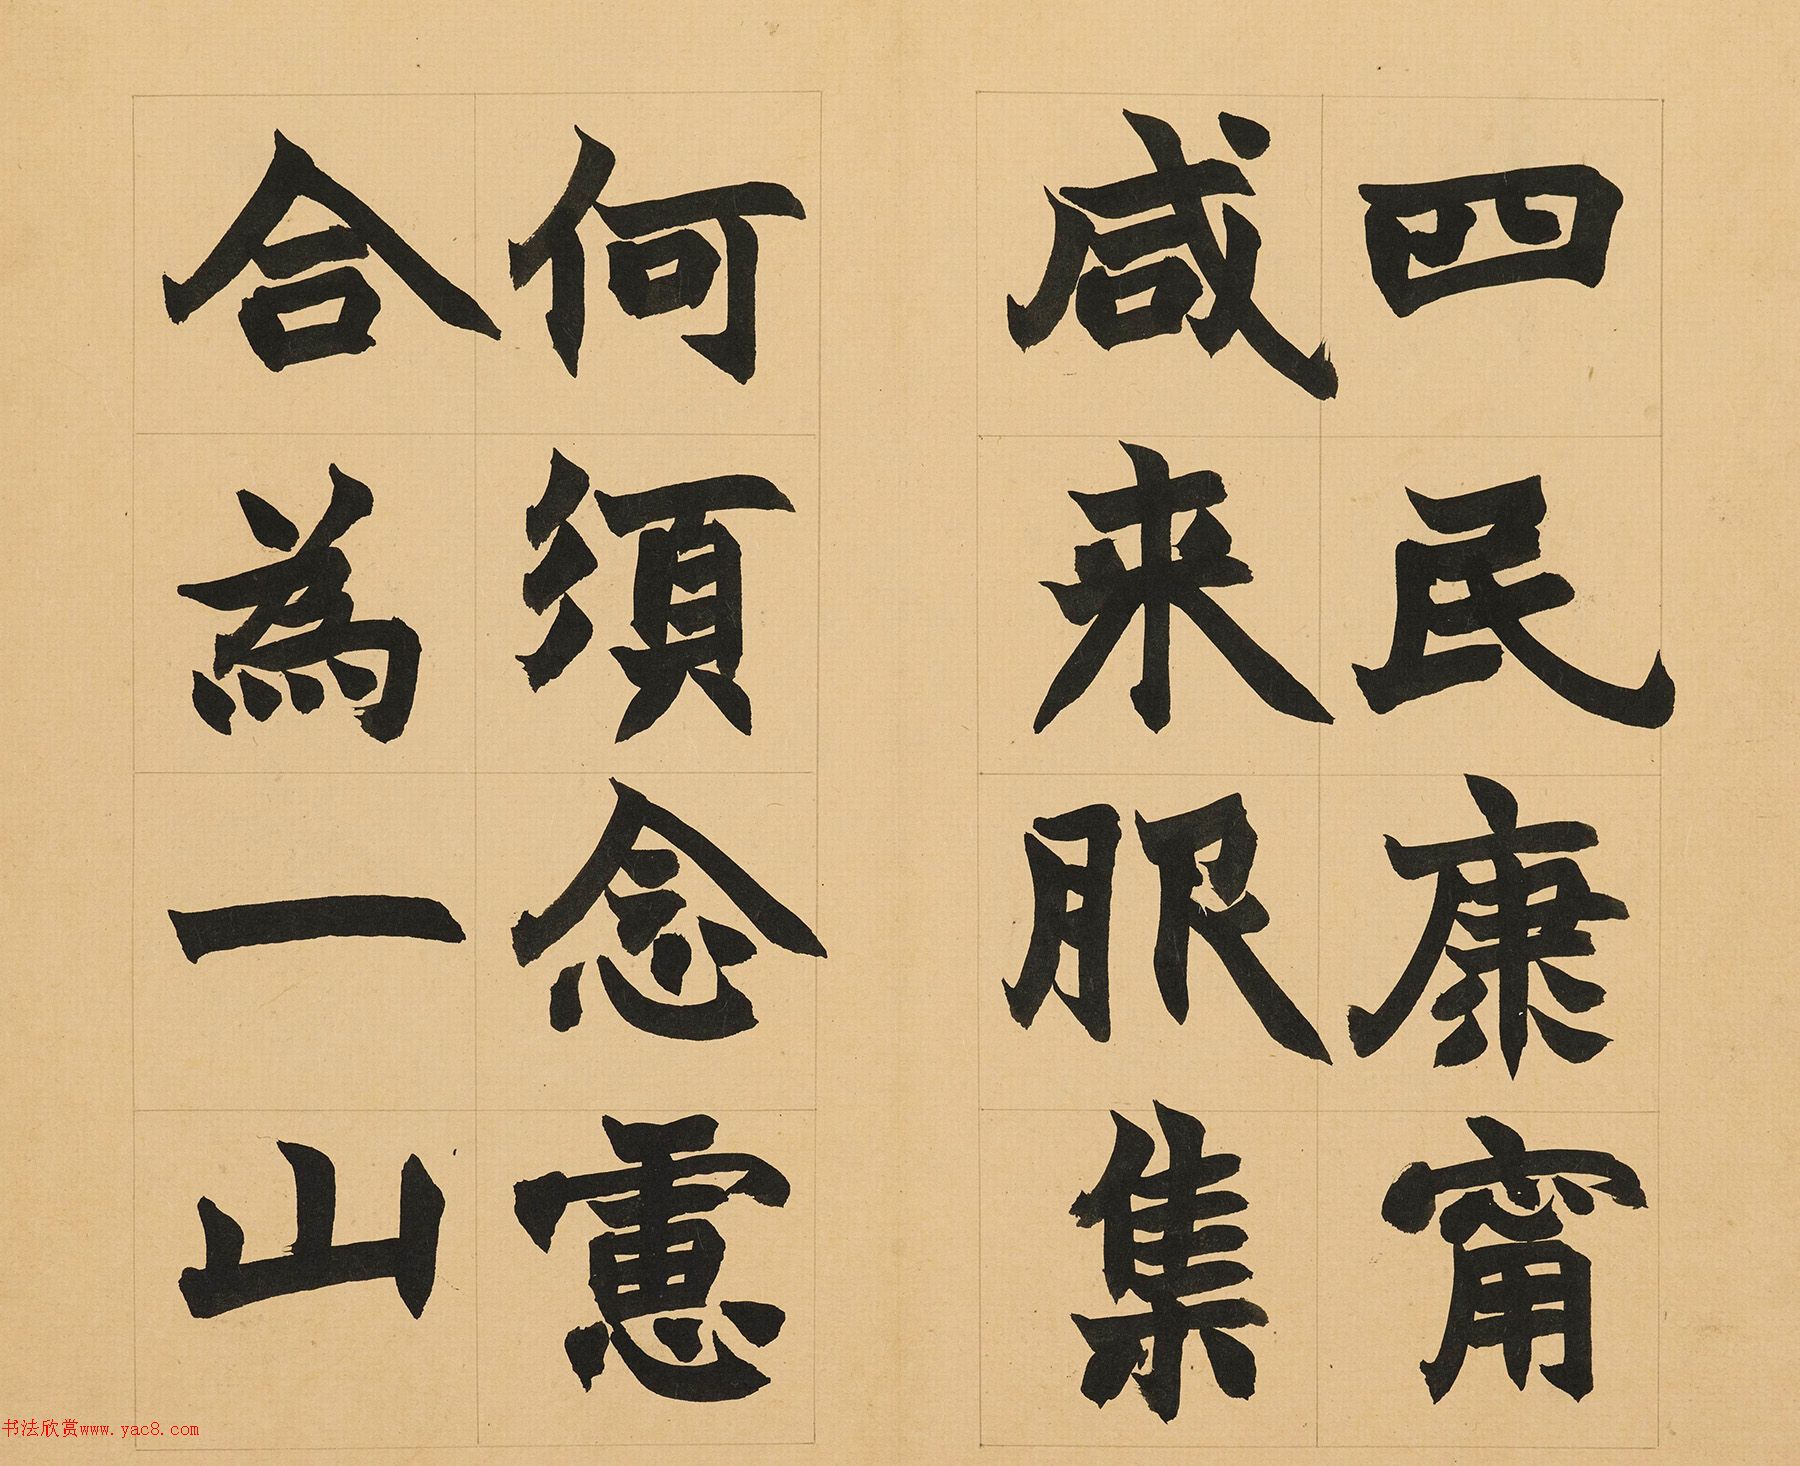 四民康甯
咸来服集
何須念慮
合為一山
书法欣赏www.yac8.com